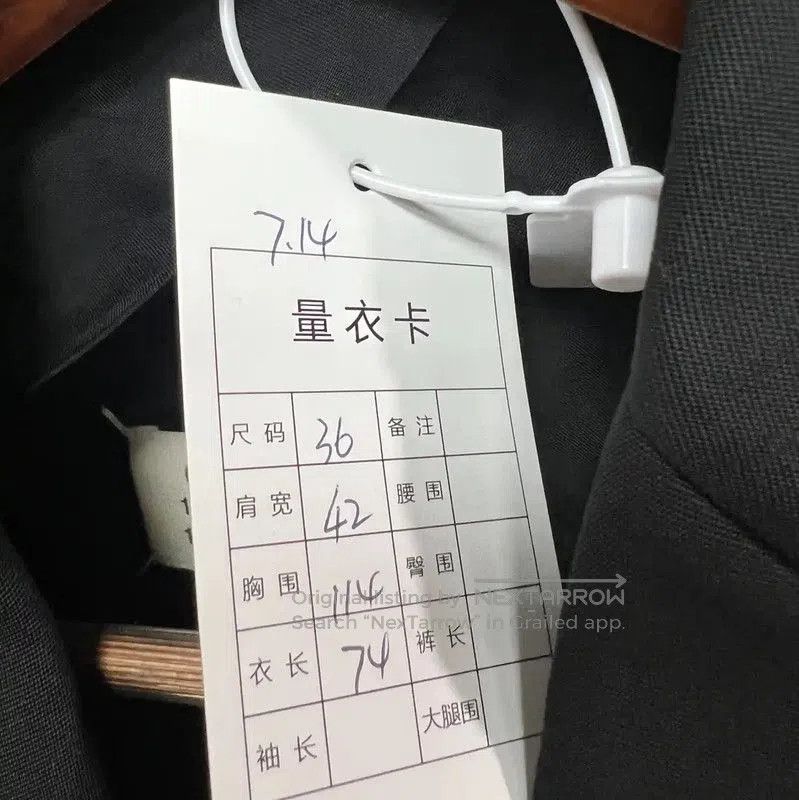 7.14
量衣卡
尺码 36 备注
肩宽 42 腰围
胸围 114 臀围
衣长 74 裤长
袖长 大腿围
Original listing by NEXTARROW
Search "NexTarrow" in Grailed app.